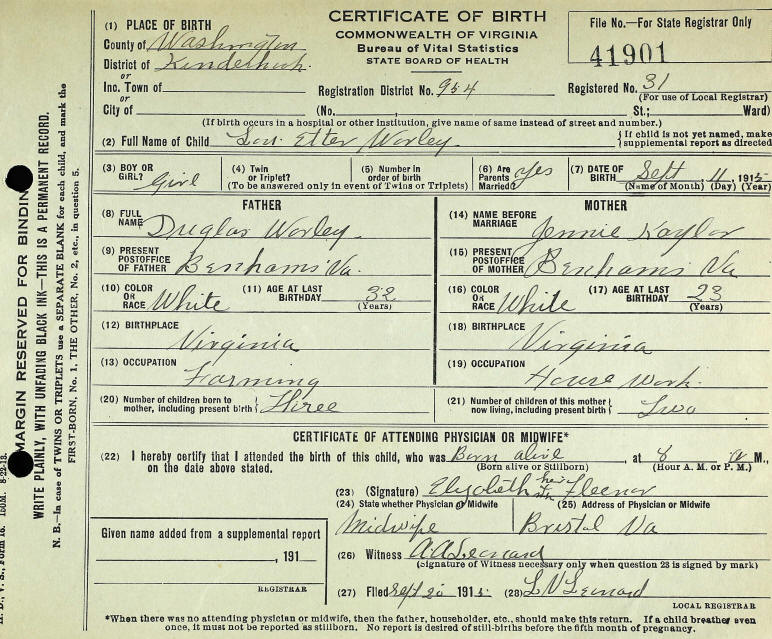 CERTIFICATE OF BIRTH
COMMONWEALTH OF VIRGINIA
Bureau of Vital Statistics
STATE BOARD OF HEALTH
File No.—For State Registrar Only
41901
(1) PLACE OF BIRTH
County of Washington
District of Kinderhook.
or
Inc. Town of
or
City of
Registration District No. 954
Registered No. 31
(For use of Local Registrar)
(No. St.; Ward)
(If birth occurs in a hospital or other institution, give name of same instead of street and number.)
(2) Full Name of Child Etter Worley.
If child is not yet named, make supplemental report as directed
(3) BOY OR GIRL? Girl
(4) Twin or Triplet?
(5) Number in order of birth
(To be answered only in event of Twins or Triplets)
(6) Are Parents Married? Yes
(7) DATE OF BIRTH Sept 11, 191
(Name of Month) (Day) (Year)
FATHER
(8) FULL NAME Duglas Worley.
(9) PRESENT POSTOFFICE OF FATHER Benhams Va.
(10) COLOR OR RACE White
(11) AGE AT LAST BIRTHDAY 32
(Years)
(12) BIRTHPLACE
Virginia
(13) OCCUPATION
Farming
(20) Number of children born to mother, including present birth Three
MOTHER
(14) NAME BEFORE MARRIAGE Jennie Kaylor
(15) PRESENT POSTOFFICE OF MOTHER Benhams Va
(16) COLOR OR RACE White
(17) AGE AT LAST BIRTHDAY 23
(Years)
(18) BIRTHPLACE
Virginia
(19) OCCUPATION
House Work.
(21) Number of children of this mother now living, including present birth Two
CERTIFICATE OF ATTENDING PHYSICIAN OR MIDWIFE*
(22) I hereby certify that I attended the birth of this child, who was Born alive, at 8 M.,
on the date above stated. (Born alive or Stillborn) (Hour A. M. or P. M.)
(23) (Signature) Elizabeth Fleenor
(24) State whether Physician or Midwife
Midwife
(25) Address of Physician or Midwife
Bristol Va
(26) Witness A A Leonard
(Signature of Witness necessary only when question 23 is signed by mark)
(27) Filed Sept 20 191
(28) L V Leonard
LOCAL REGISTRAR
Given name added from a supplemental report
, 191
REGISTRAR
*When there was no attending physician or midwife, then the father, householder, etc., should make this return. If a child breathes even
once, it must not be reported as stillborn. No report is desired of still-births before the fifth month of pregnancy.
MARGIN RESERVED FOR BINDING
WRITE PLAINLY, WITH UNFADING BLACK INK—THIS IS A PERMANENT RECORD.
N. B.—In case of TWINS OR TRIPLETS use a SEPARATE BLANK for each child, and mark the
FIRST-BORN, No. 1, THE OTHER, No. 2, etc., in question 5.
V. S., Form 16. 150M. 8-22-13.